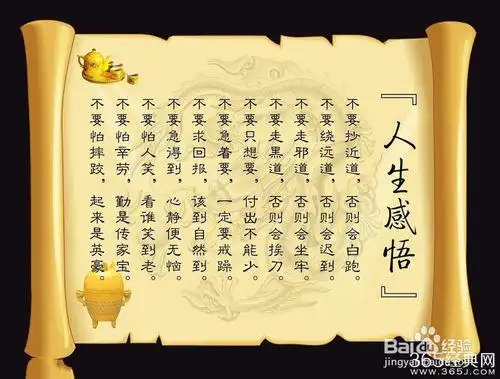 『人生感悟』
不要抄近道，否则会白跑。
不要绕远道，否则会迟到。
不要走邪道，否则会坐牢。
不要走黑道，否则会挨刀。
不要只想要，付出不能少。
不要急着要，一定要戒躁。
不要求回报，该到自然到。
不要急得到，心静便无恼。
不要怕人笑，看谁笑到老。
不要怕辛劳，勤是传家宝。
不要怕摔跤，起来是英豪。
Baidu经验
www.365J.com